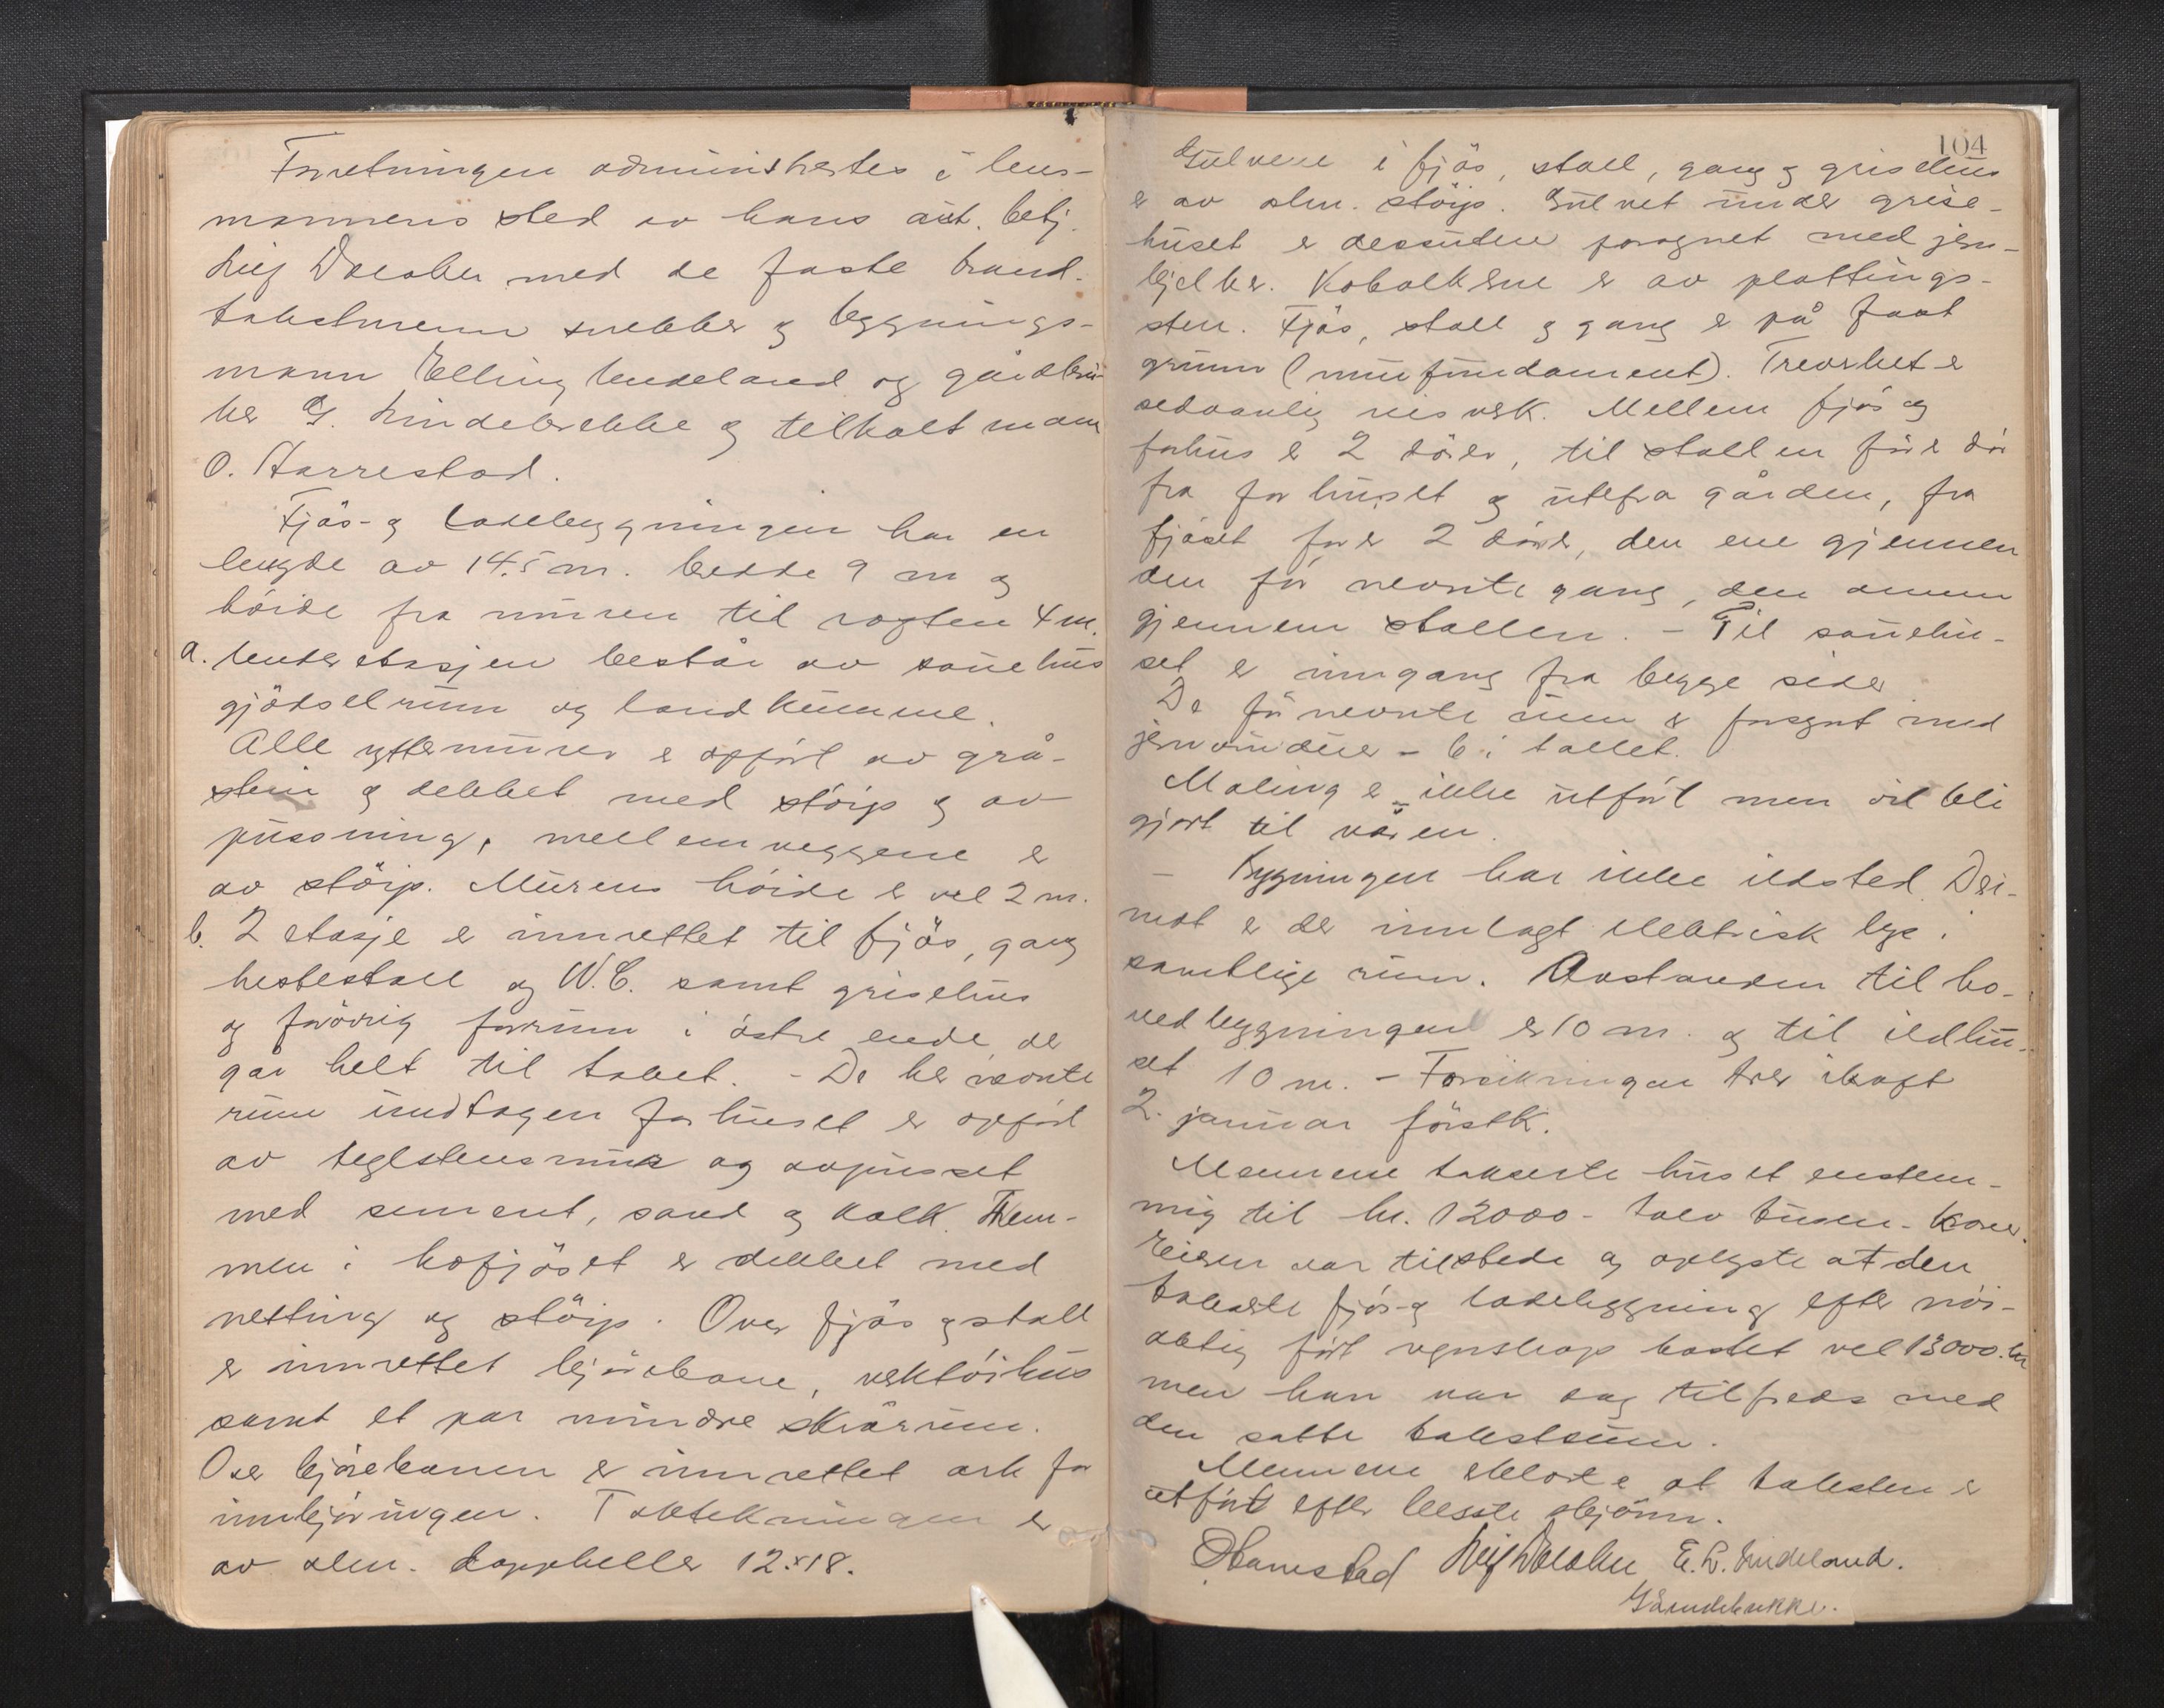 Forretningen administrertes i lens-
mannens sted av hans aut. betj.
Leif Dolsben med de faste brand-
takstmenn snekker og bygnings-
mann Elling Undeland og gårdbru-
ker G. Lindebrekke og tilkalt mann
O. Harrestad.
Fjøs- og ladebygningen har en
lengde av 14.5 m. bredde 9 m og
höide fra muren til røsten 4 m.
a. Underetasjen består av sauehus
gjödselrum og landkumme.
Alle yttermurer er opfört av grå-
stein og dekket med stöip og av-
pussning, mellemveggene er
av stöip. Murens höide er vel 2 m.
b. 2 etasje er innrettet til fjös, gang
hestestall og W.C. samt grisehus
og forövrig forrum i östre ende der
går helt til taket. - De her nevnte
rum undtagen forhuset er opfört
av teglstensmur og avpusset
med sement, sand og kalk. Them-
men i kofjöset er dekket med
netting og stöip. Over fjös og stall
er innrettet kjörebane, verktöihus
samt et par mindre skrårum.
Over kjörebanen er innrettet ark for
innkjöringen. Taktekningen er
av alm. lappheller 12x18.
104
Gulvene i fjös, stall, gang og grisehus
er av alm. stöip. Gulvet under grise-
huset er dessuten forsynet med jern-
bjelker. Kobåsene er av plattings-
sten. Fjös, stall og gang er på fast
grunn (murfundament). Treverket er
sedvanlig reisverk. Mellem fjös og
forhus er 2 dörer, til stallen förer dör
fra forhuset og utefra gården, fra
fjöset förer 2 dörer, den ene gjennem
den för nevnte gang, den annen
gjennem stallen. - Til sauehu-
set er inngang fra begge sider
De för nevnte rum er forsynt med
jernvinduer - 6 i tallet.
Maling er ikke utfört men vil bli
gjort til våren.
- Bygningen har ikke ildsted. Der-
imot er der innlagt elektrisk lys i
samtlige rum. Avstanden til ho-
vedbygningen er 10 m. og til ildhu-
set 10 m. - Forsikringen trer ikraft
2. januar förstk.
Mennene takserte huset enstem-
mig til kr. 12000 - tolv tusen - kroner.
Eieren var tilstede og oplyste at den
takserte fjös- og ladebygning efter nöi-
aktig fört regnskap kostet vel 13000 kr
men han var dog tilfreds med
den satte takstsum.
Mennene erklærte at taksten er
utfört efter beste skjönn.
O Harrestad Leif Dolsben E. L. Undeland.
G Lindebrekke.